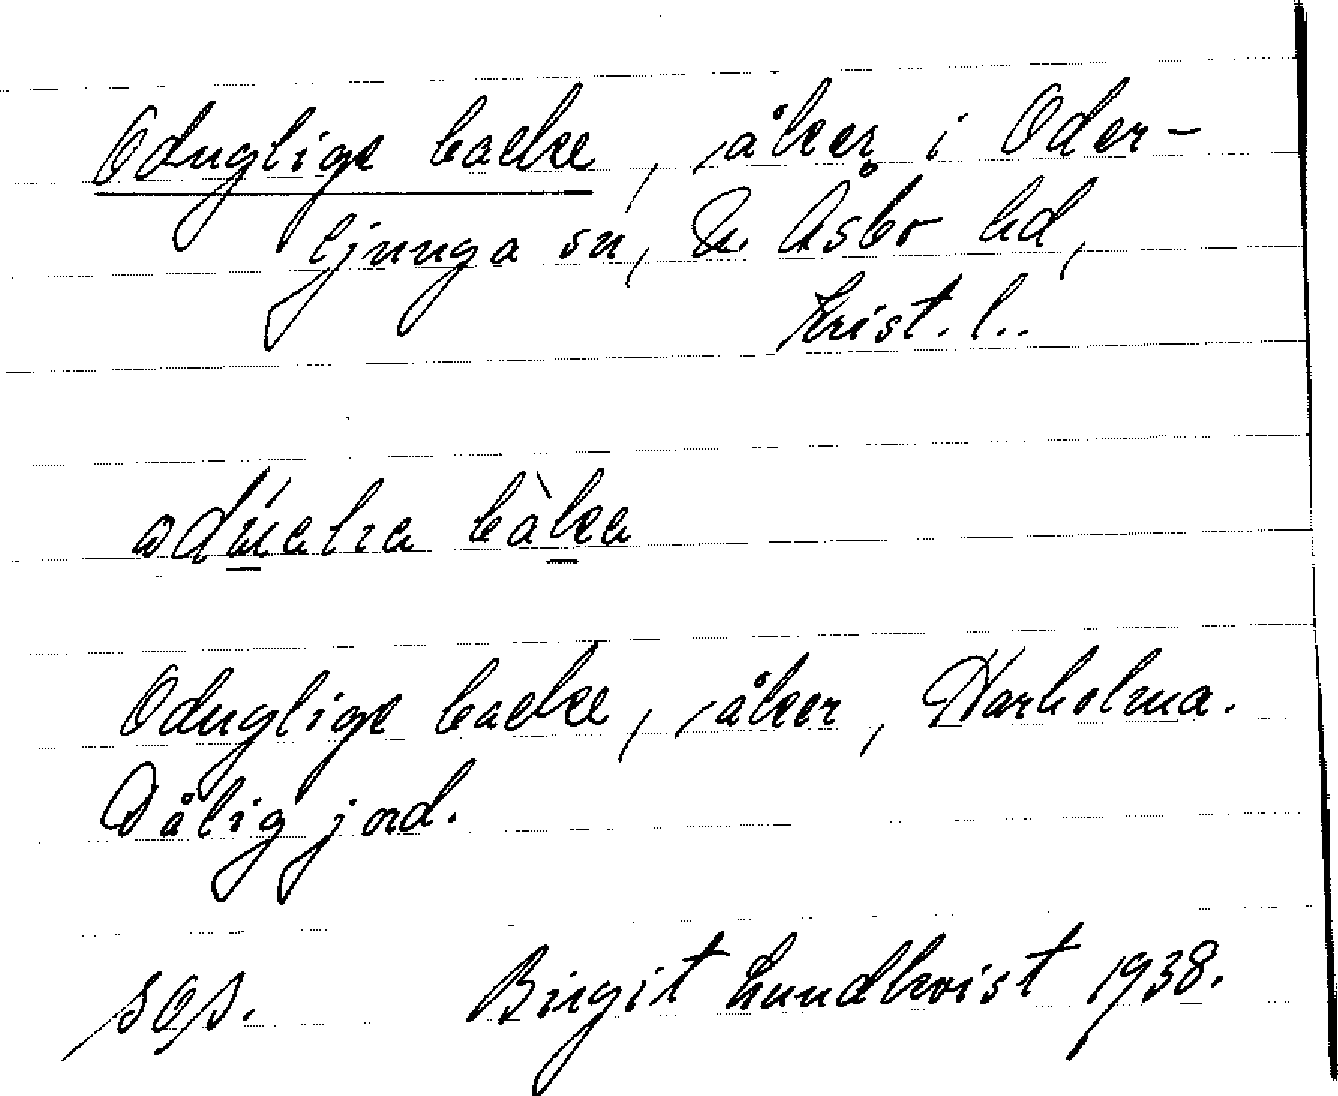 Oduglige backe, åker i Oder-
ljunga sn, N. Åsbo hd,
Krist. l..
bàka
Oduglige backe, åker, Harholma.
Dålig jord.
SOS. Birgit Lundkvist 1938.